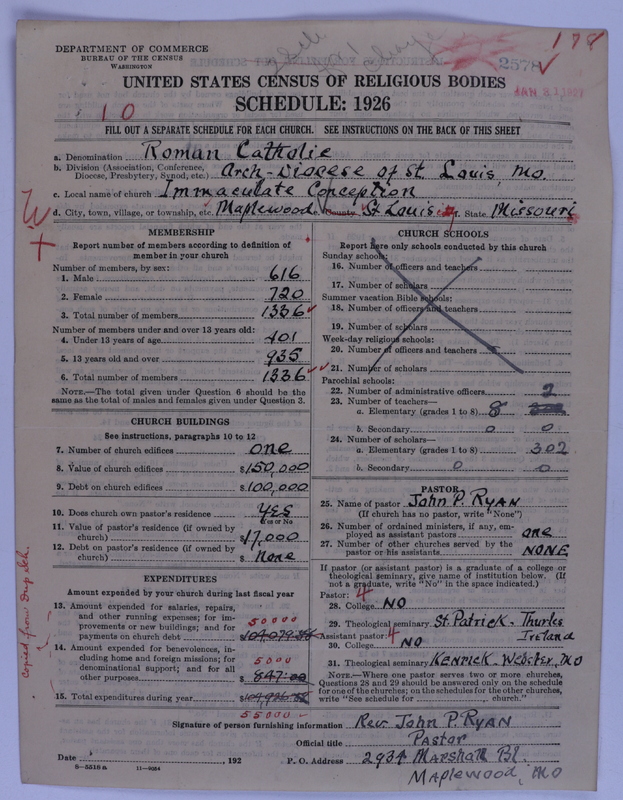 178
DEPARTMENT OF COMMERCE
BUREAU OF THE CENSUS
WASHINGTON
2578
JAN 21 1927
UNITED STATES CENSUS OF RELIGIOUS BODIES
SCHEDULE: 1926
10
FILL OUT A SEPARATE SCHEDULE FOR EACH CHURCH. SEE INSTRUCTIONS ON THE BACK OF THIS SHEET
a. Denomination Roman Catholic
b. Division (Association, Conference, Diocese, Presbytery, Synod, etc.) Arch-Diocese of St. Louis, Mo.
c. Local name of church Immaculate Conception
d. City, town, village, or township, etc. Maplewood e. County St Louis f. State Missouri
MEMBERSHIP
Report number of members according to definition of
member in your church
Number of members, by sex:
1. Male 616
2. Female 720
3. Total number of members 1336
Number of members under and over 13 years old:
4. Under 13 years of age 401
5. 13 years old and over 935
6. Total number of members 1336
NOTE.—The total given under Question 6 should be
same as the total of males and females given under Question 3.
CHURCH BUILDINGS
See instructions, paragraphs 10 to 12
7. Number of church edifices one
8. Value of church edifices $150,000
9. Debt on church edifices $100,000
10. Does church own pastor's residence YES
Yes or No
11. Value of pastor's residence (if owned by
church) $17,000
12. Debt on pastor's residence (if owned by
church) $None
EXPENDITURES
Amount expended by your church during last fiscal year
13. Amount expended for salaries, repairs,
and other running expenses; for im-
provements or new buildings; and for
payments on church debt 50000
14. Amount expended for benevolences, in-
cluding home and foreign missions; for
denominational support; and for all
other purposes 5000 $847.00
15. Total expenditures during year
55000
copied from
CHURCH SCHOOLS
Report here only schools conducted by this church
Sunday schools:
16. Number of officers and teachers
17. Number of scholars
Summer vacation Bible schools:
18. Number of officers and teachers
19. Number of scholars
Week-day religious schools:
20. Number of officers and teachers
21. Number of scholars
Parochial schools:
22. Number of administrative officers 2
23. Number of teachers—
a. Elementary (grades 1 to 8) 8
b. Secondary 0 0
24. Number of scholars—
a. Elementary (grades 1 to 8) 302
b. Secondary 0 0
PASTOR
25. Name of pastor John P. RYAN
(If church has no pastor, write "None")
26. Number of ordained ministers, if any, em-
ployed as assistant pastors one
27. Number of other churches served by the
pastor or his assistants NONE
If pastor (or assistant pastor) is a graduate of a college or
theological seminary, give name of institution below. (If
not a graduate, write "No" in the space indicated.)
Pastor: 4
28. College NO
29. Theological seminary St. Patrick - Thurles
Ireland
Assistant pastor: 4
30. College NO
31. Theological seminary Kenrick Webster, MO
NOTE.—Where one pastor serves two or more churches,
Questions 28 and 29 should be answered only on the schedule
for one of the churches; on the schedules for the other churches,
write "See schedule for church."
Signature of person furnishing information Rev. John P. RYAN
Official title Pastor
Date , 192 P. O. Address 2934 Marshall Bl.
8—5318 a 11—8064
Maplewood, MO